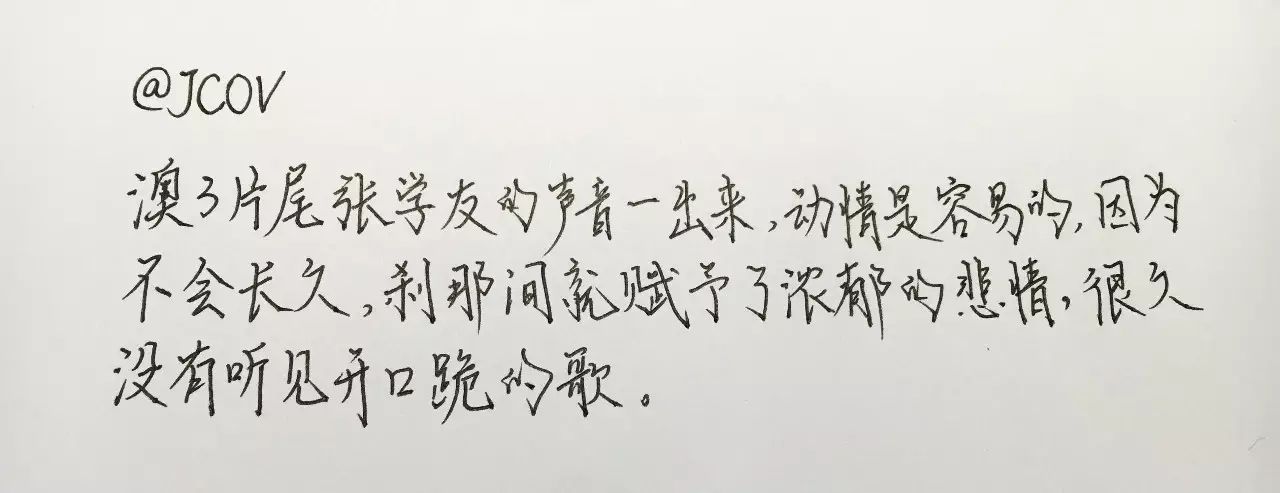 @JCOV
澳3片尾张学友的声音一出来,动情是容易的,因为
不会长久,刹那间就赋予了浓郁的悲情,很久
没有听见开口跪的歌。